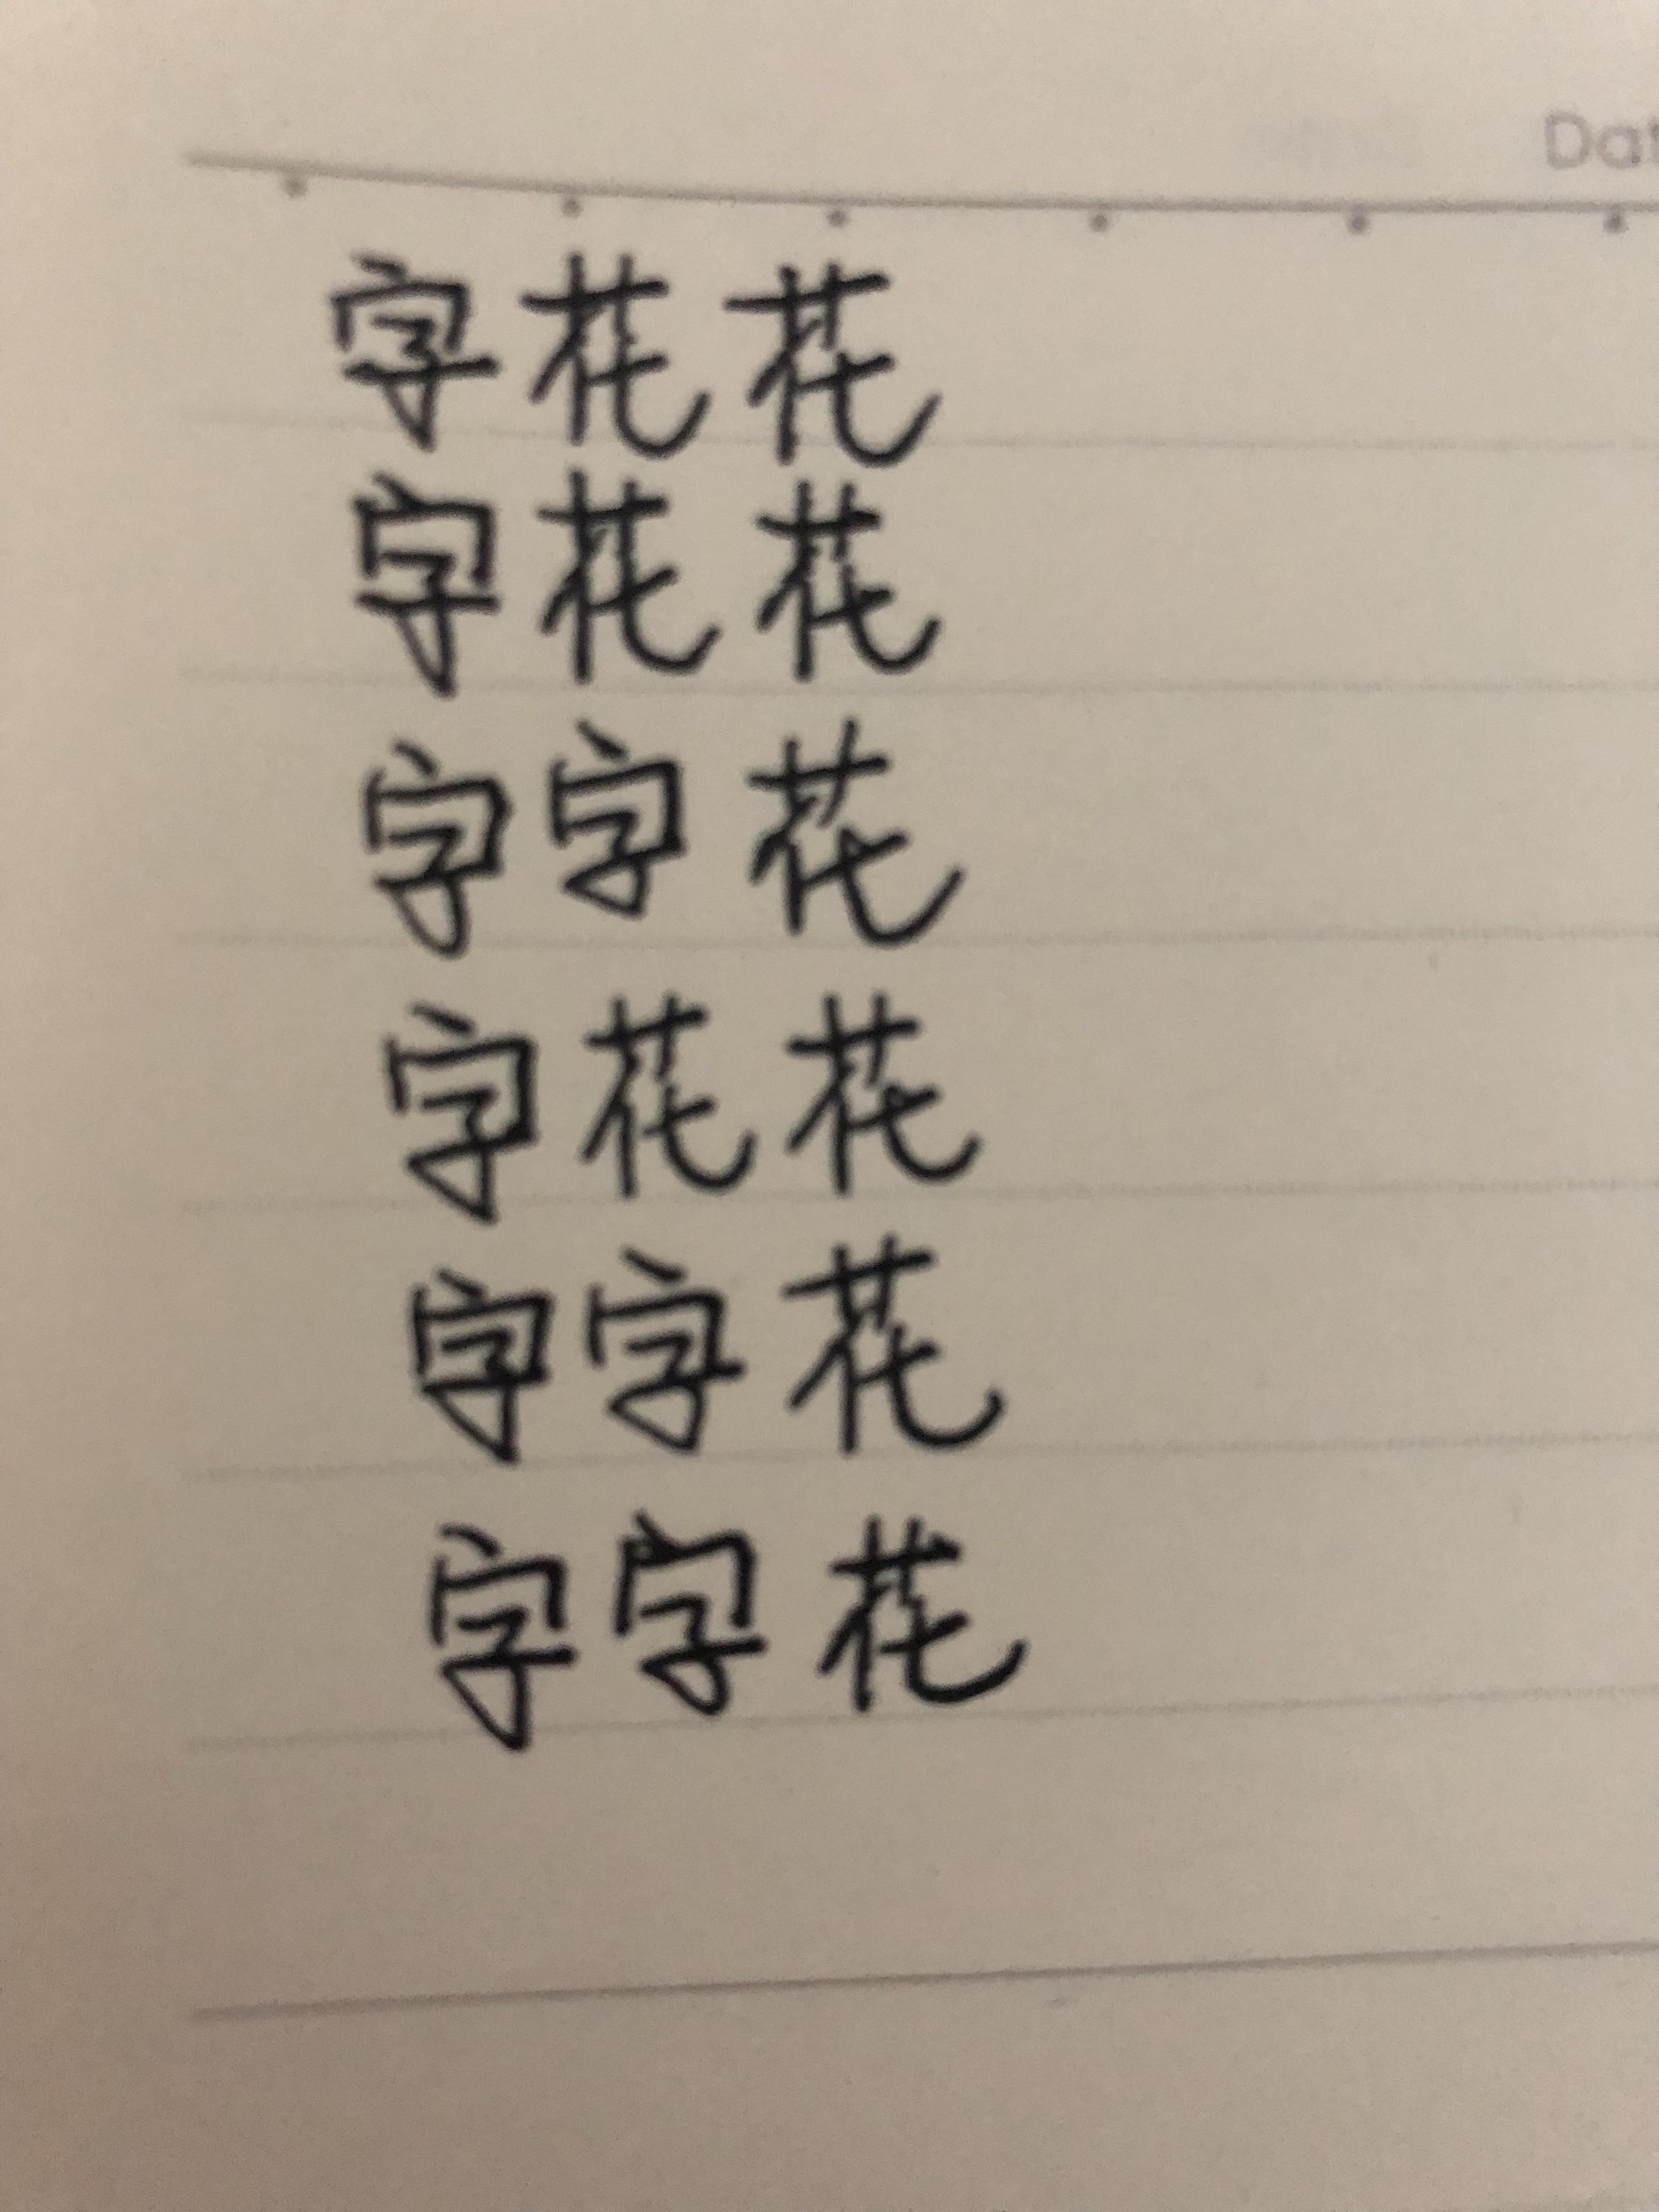 Dat
字花花
字花花
字字花
字花花
字字花
字字花